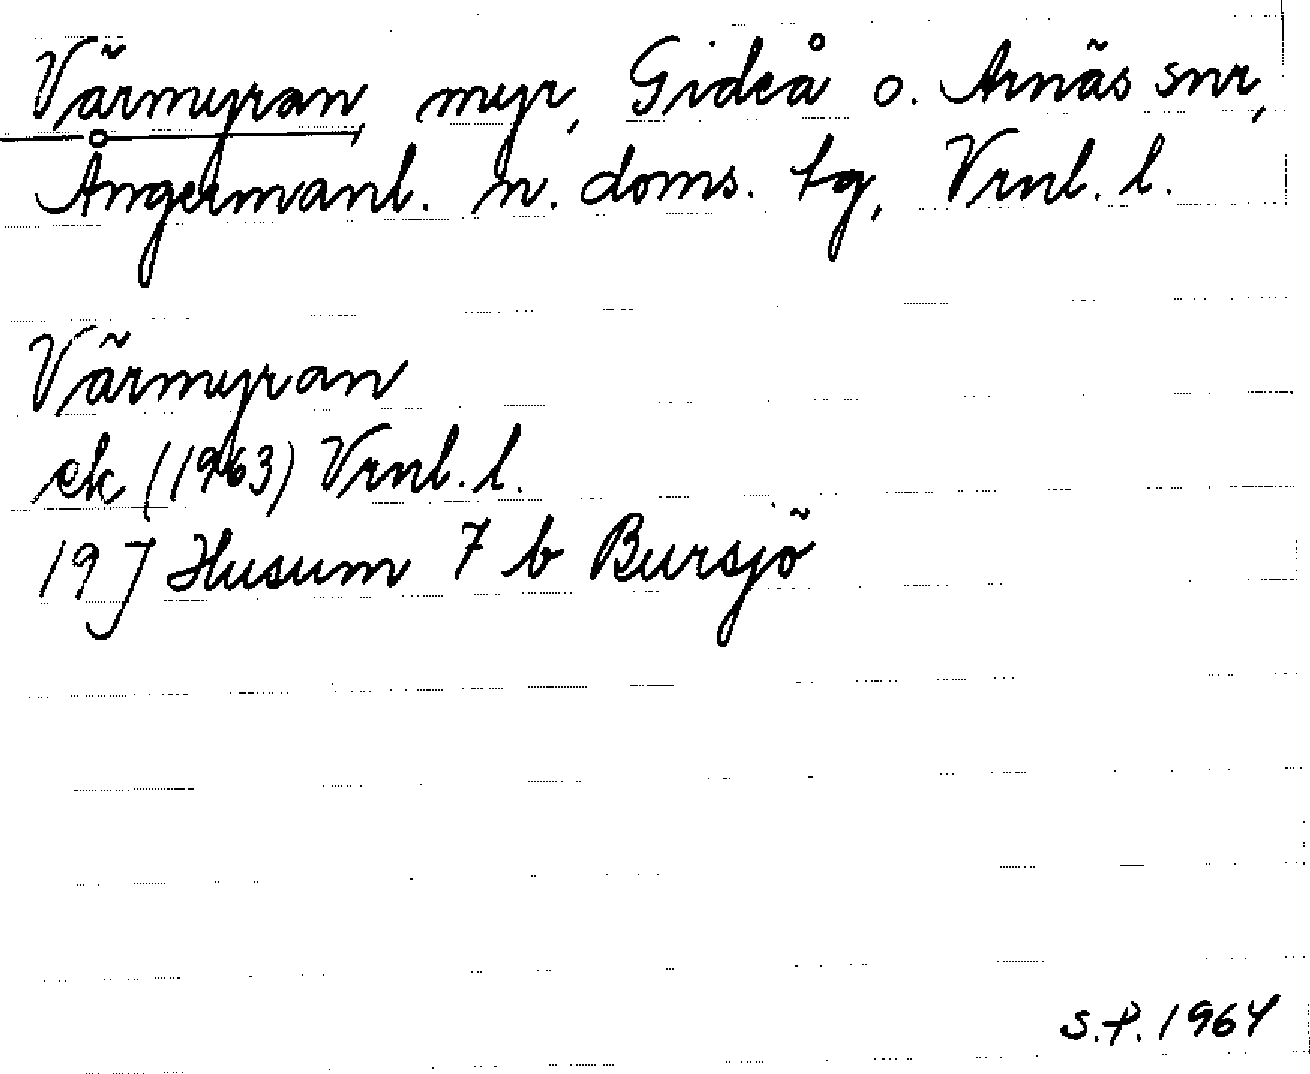 Värmyran, myr, Gideå o. Arnäs snr,
Ångermanl. n. doms. tg, Vrnl. l.
Värmyran
ek (1963) Vrnl. l.
19 J Husum 7 b Bursjö
S.P. 1964